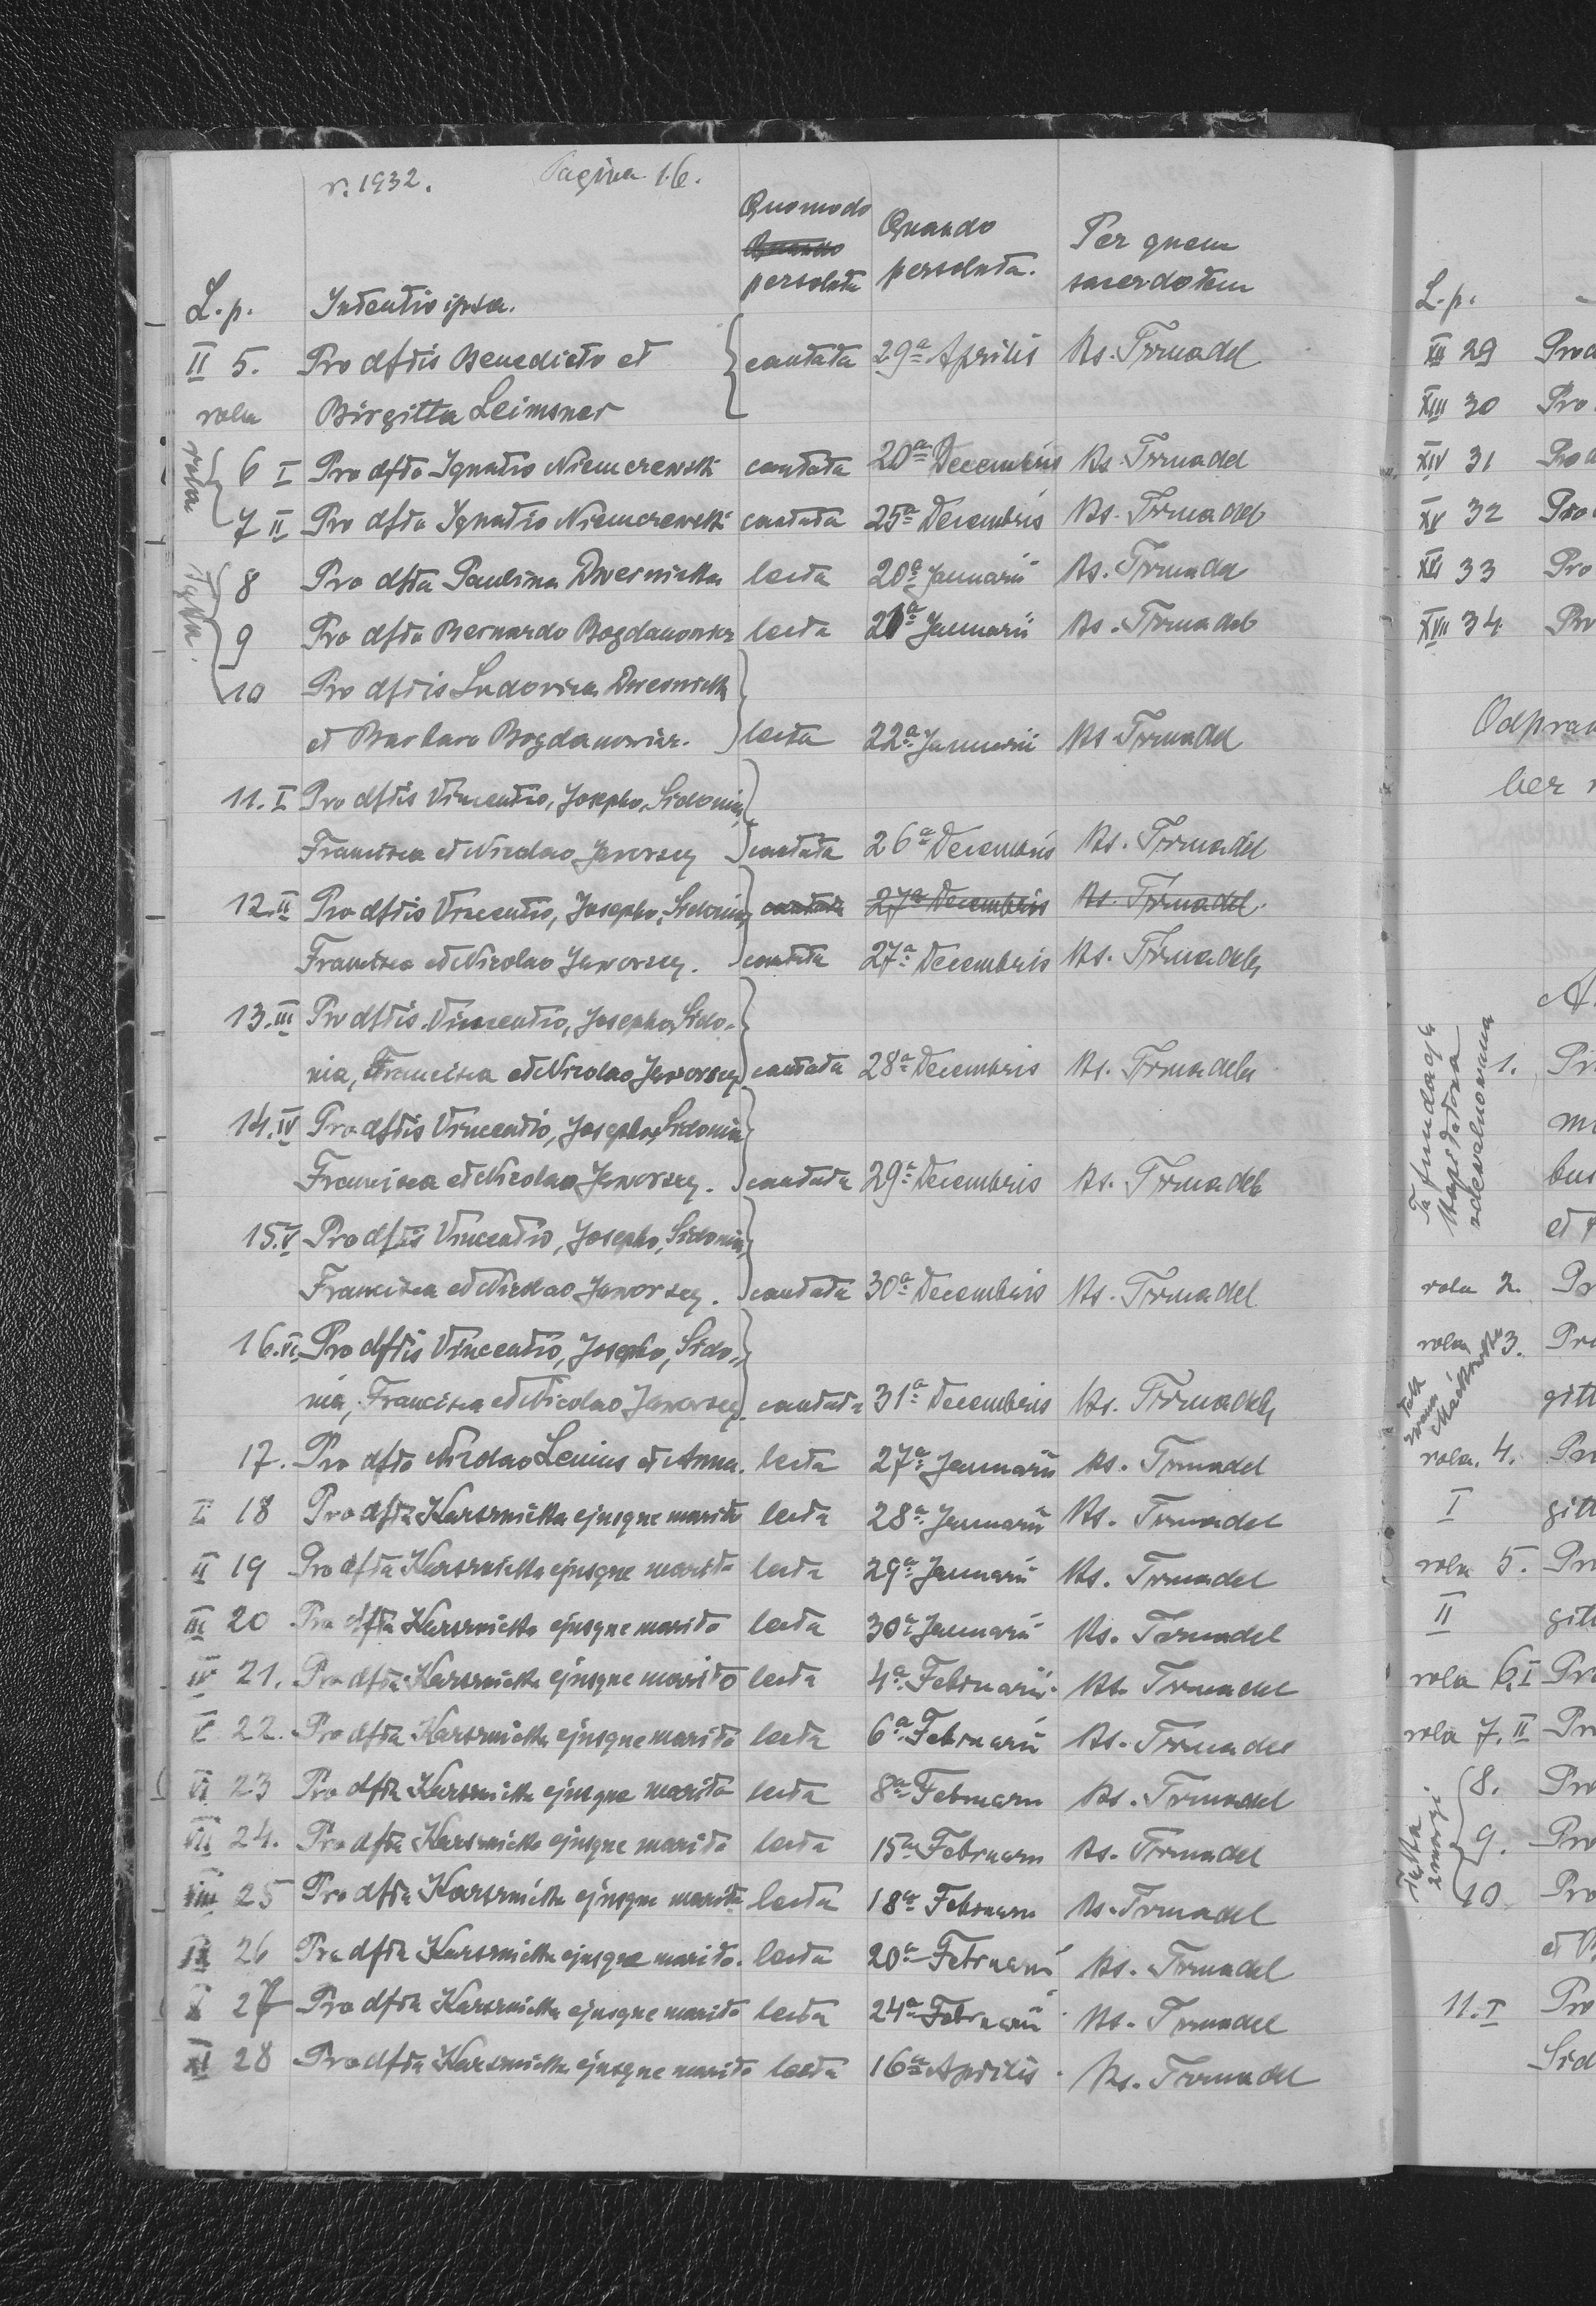 r. 1932. Pagina 16.
L. p. Intentio ipsa. Quomodo Quando persoluta Quando persoluta. Per quem sacerdotem
II 5. Pro dftis Benedicto et cantata 29a Aprilis Ks. Trmadel
rola Birgitta Leimsner
rola 6 I Pro dfto Ignatio Niemczewski cantata 20a Decembris Ks. Trmadel
7 II Pro dfto Ignatio Niemczewski cantata 25a Decembris Ks. Trmadel
Łąka. 8 Pro dfta Paulina Dwernicka lecta 20a Januarii Ks. Trmadel
9 Pro dfto Bernardo Bogdanowicz lecta 21a Januarii Ks. Trmadel
10 Pro dftis Ludovica Dwernicka
et Barbara Bogdanowicz. lecta 22a Januarii Ks. Trmadel
11. I Pro dftis Vincentio, Josepho, Sidonia,
Francisca et Nicolao Jaworscy cantata 26a Decembris Ks. Trmadel
12. II Pro dftis Vincentio, Josepho, Sidonia, cantata 27a Decembris Ks. Trmadel.
Francisca et Nicolao Jaworscy. cantata 27a Decembris Ks. Trmadel
13. III Pro dftis Vincentio, Josepho, Sido-
nia, Francisca et Nicolao Jaworscy cantata 28a Decembris Ks. Trmadel
14. IV Pro dftis Vincentio, Josepho, Sidonia
Francisca et Nicolao Jaworscy. cantata 29a Decembris Ks. Trmadel
15. V Pro dftis Vincentio, Josepho, Sidonia,
Francisca et Nicolao Jaworscy. cantata 30a Decembris Ks. Trmadel
16. VI. Pro dftis Vincentio, Josepho, Sido-
nia, Francisca et Nicolao Jaworscy. cantata 31a Decembris Ks. Trmadel
17. Pro dfto Nicolao Lenius et Anna. lecta 27a Januarii Ks. Trmadel
I 18 Pro dfta Karsznicka ejusque marito lecta 28a Januarii Ks. Trmadel
II 19 Pro dfta Karsznicka ejusque marito lecta 29a Januarii Ks. Trmadel
III 20 Pro dfta Karsznicka ejusque marito lecta 30a Januarii Ks. Trmadel
IV 21. Pro dfta Karsznicka ejusque marito lecta 4a Februarii Ks. Trmadel
V 22. Pro dfta Karsznicka ejusque marito lecta 6a Februarii Ks. Trmadel
VI 23 Pro dfta Karsznicka ejusque marito lecta 8a Februarii Ks. Trmadel
VII 24. Pro dfta Karsznicka ejusque marito lecta 15a Februarii Ks. Trmadel
VIII 25 Pro dfta Karsznicka ejusque marito lecta 18a Februarii Ks. Trmadel
IX 26 Pro dfta Karsznicka ejusque marito. lecta 20a Februarii Ks. Trmadel
X 27 Pro dfta Karsznicka ejusque marito lecta 24a Februarii Ks. Trmadel
XI 28 Pro dfta Karsznicka ejusque marito lecta 16a Aprilis Ks. Trmadel
L. p.
XII 29 Pro d
XIII 30 Pro
XIV 31 Pro d
XV 32 Pro
XVI 33 Pro
XVII 34 Pro
Odpraw
ber
A.
Ta fundacja
1. Pr
bus
et
rola 2. Pr
rola 3. Pro
gitt
rola. 4. Pro
I gitt
rola 5. Pro
II gitt
rola 6. I Pro
rola 7. II Pro
Łąka 8. Pro
9. Pro
10 Pro
et B
11. I Pro
Sid